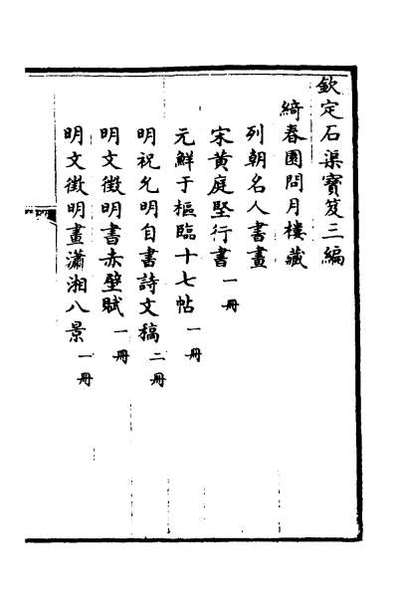 欽定石渠寶笈三編
綺春園問月樓藏
列朝名人書畫
宋黃庭堅行書一冊
元鮮于樞臨十七帖一冊
明祝允明自書詩文稿二冊
明文徵明書赤壁賦一冊
明文徵明畫瀟湘八景一冊